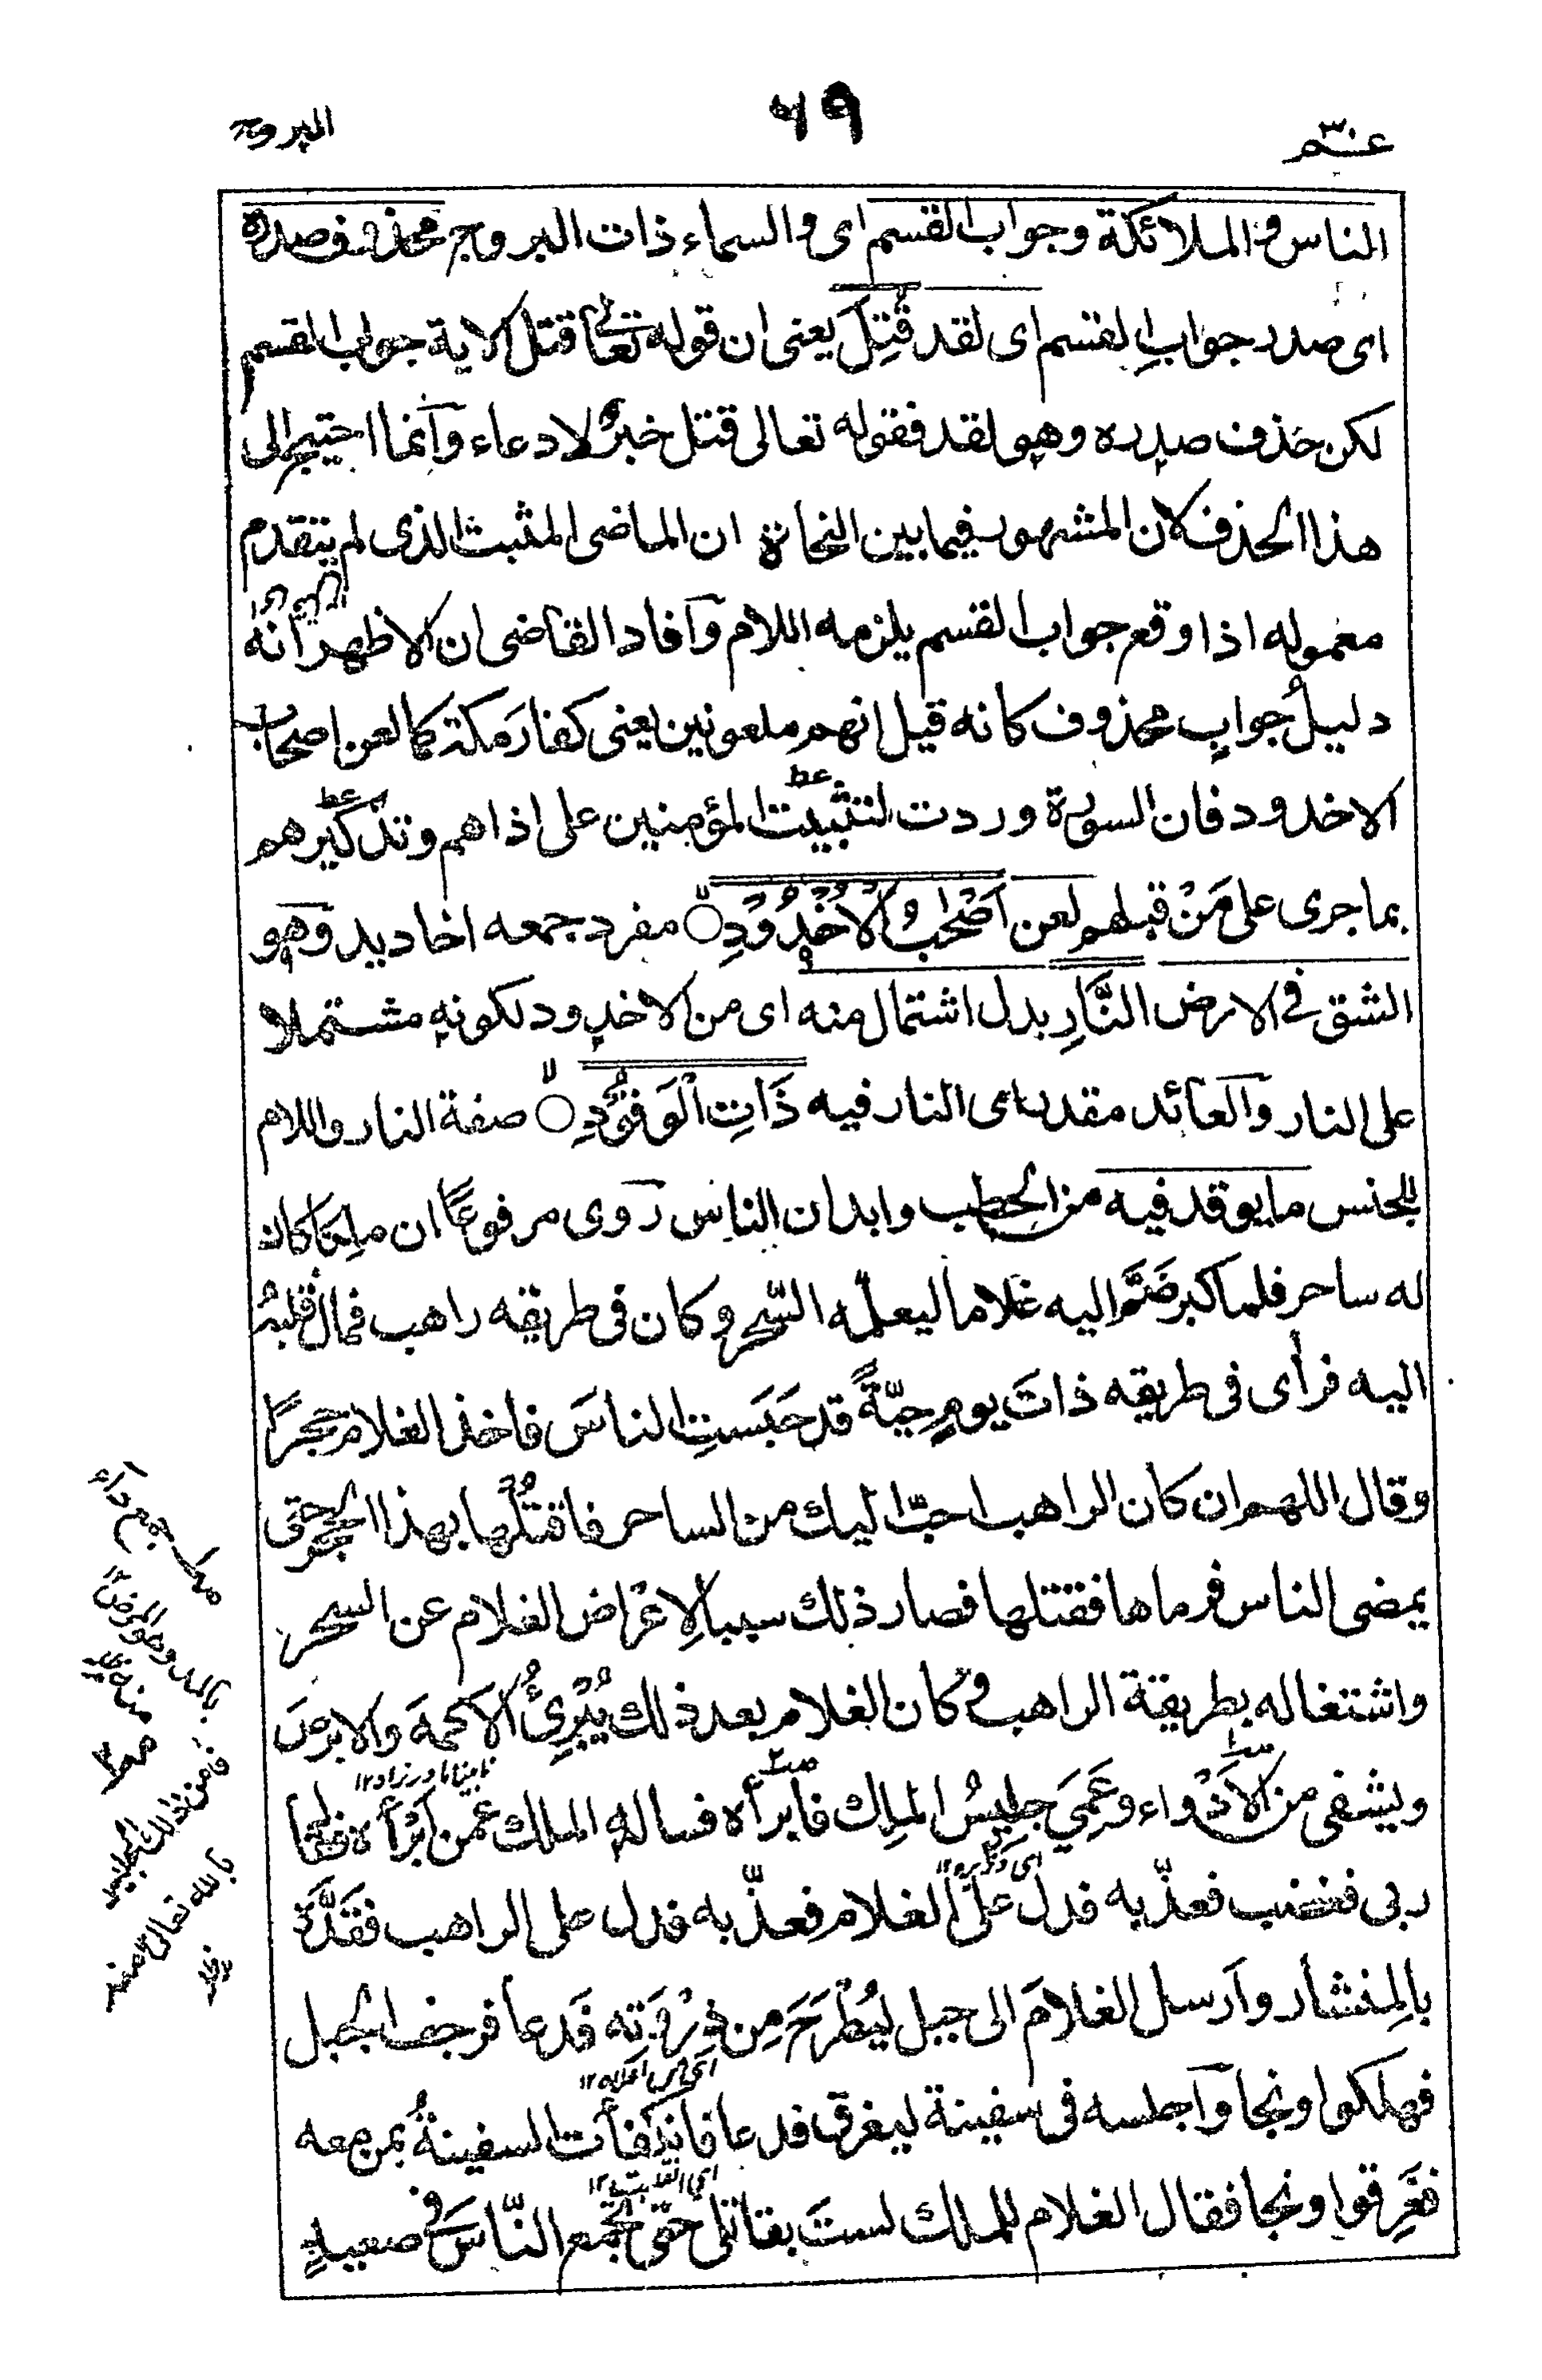 عم ٣٠
٦٩
البروج
الناس و الملائكة وجواب القسم اى والسماء ذات البروج محذوف صدره
اى صدر جوابِ القسم اى لقد قُتِلَ يعنى ان قوله تعالى قتل الاية جواب القسم
لكن حُذف صدره وهو لقد فقوله تعالى قتل خبرٌ لا دعاء وانما احتيج الى
هذا الحذف لان المشهور فيما بين النحاة ان الماضى المثبت الذى لم يتقدم
معموله اذا وقع جواب القسم يلزمه اللام وآفاد القاضى ان الاظهر انه
دليلُ جوابٍ محذوف كانه قيل انهم ملعونين يعنى كفارَ مكة كما لعن اصحاب
الاخدود فان السورة وردت لتثبيت المؤمنين على اذاهم وتذكيرهم
بما جرى على مَنْ قبلهم لعن اَصْحٰبُ الْاُخْدُوْدِۙ مفرد جمعه اخاديد وهو
الشق فى الارض النَّارِ بدل اشتمال منه اى من الاخدود لكونه مشتملا
على النار والعائد مقدر اى النار فيه ذَاتِ الْوَقُوْدِۙ صفة النار واللام
للجنس ما يوقد فيه من الحطب وابدان الناس روى مرفوعًا ان ملكا كان
له ساحر فلما كبر ضَمَّ اليه غلاما ليعلّمه السّحر وكان فى طريقه راهب فمال قلبُه
اليه فرأى فى طريقه ذاتَ يومٍ حيّةً قد حَبَستِ الناسَ فاخذ الغلام حجرًا
وقال اللهم ان كان الراهب احبّ اليك من الساحر فاقتُلْها بهذا الحجر حتى
يمضى الناس فرماها فقتلها فصار ذلك سببا لِاعْراض الغلام عن السحر
واشتغاله بطريقة الراهب و كان الغلام بعد ذلك يُبْرِئُ الاكمهَ والابرصَ
نابينا مادرزاد ١٢
ويشفى من الاَدْواء وعَمِيَ جليسُ الملِك فابرأه فساله الملك عمن اَبْرَأه فقال
ربى فغضب فعذّبه فدلّ على الغلام فعذّبه فدل على الراهب فقدَّه
بالمِنشار وآرسل الغلامَ الى جبل ليُطْرَحَ مِن ذِرْوَتِه فَدعا فرجف الجبل
فهلكوا ونجا وآجلسه فى سفينة ليغرق فدعا فانكفأت السفينةُ بمن معه
اى انقلبت ١٢
فغَرِقوا ونجا فقال الغلام للملك لستَ بقاتلى حتى تجمع النّاسَ فى صعيدٍ
جمع داء
بالمد وهو المرض
منه
بالله تعالى منه